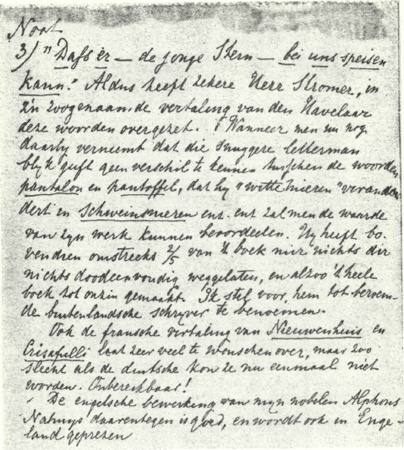 Noot
3) "Dafs er — de jonge Stern — bei uns speisen
Kann." Aldus heeft zekere Herr Stromer, in
z'n zoogenaamde vertaling van den Havelaar
deze woorden overgezet. Wanneer men nu nog
daarby verneemt dat die snuggere letterman
blyk geeft geen verschil te kennen tusschen de woorden
pantalon en pantoffel, dat hy "witte mieren" veran
dert in Schweinsnieren enz. enz zal men de waarde
van zyn werk kunnen beoordeelen. Hy heeft bo-
vendien omstreeks 2/5 van 't boek mir nichts dir
nichts doodeenvoudig weggelaten, en alzoo 't heele
boek tot onzin gemaakt. Ik stel voor, hem tot beroem-
de buitenlandsche schryver te benoemen.
Ook de fransche vertaling van Nieuwenhuis en
Crisafulli laat zeer veel te wenschen over, maar zoo
slecht als de duitsche kon ze nu eenmaal niet
worden. Onbereikbaar!
De engelsche bewerking van myn nobelen Alphons
Nahuys daarentegen is goed, en wordt ook in Enge-
land geprezen